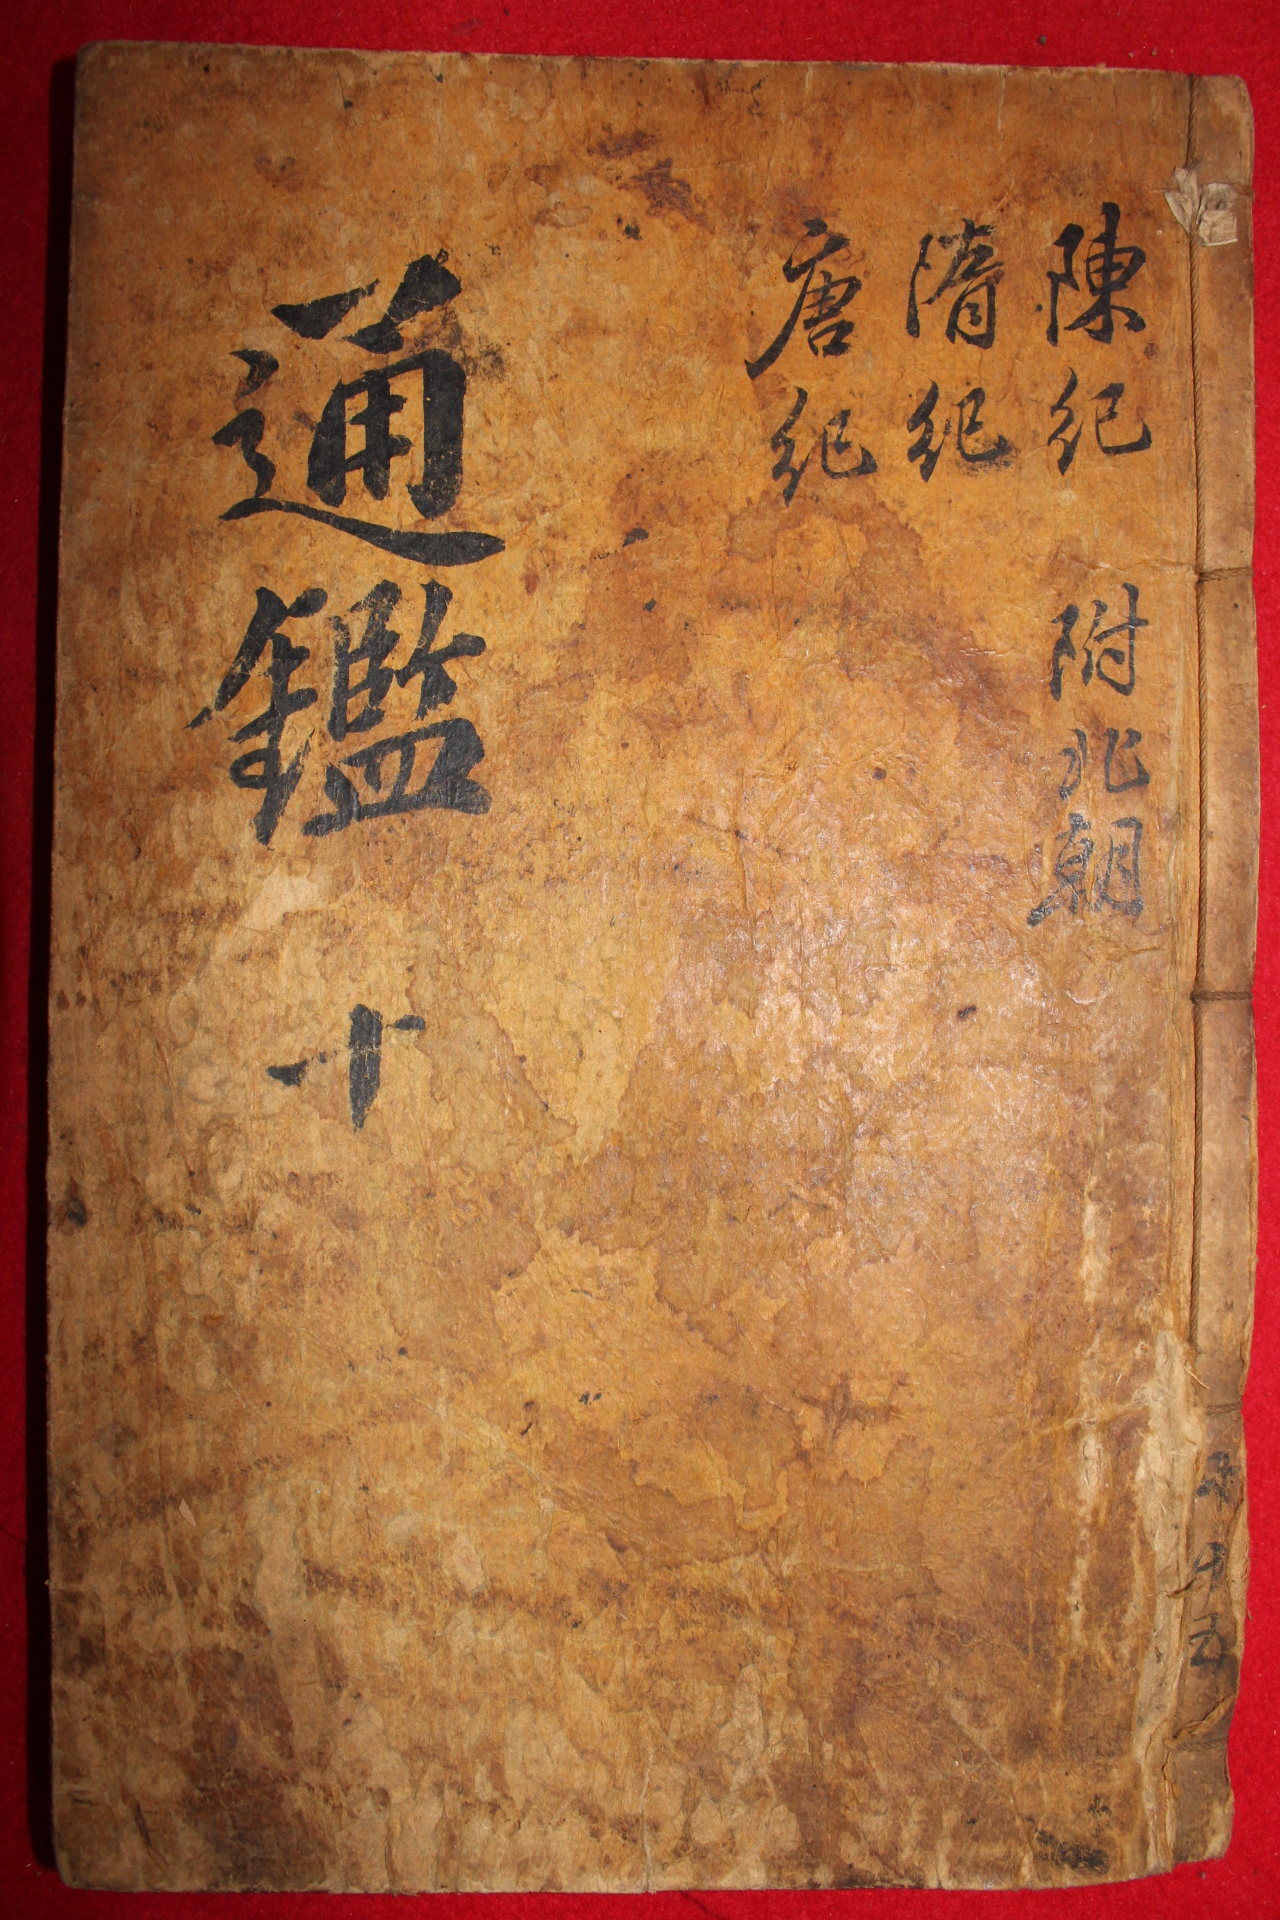 陳紀 附北朝
隋紀
唐紀
通鑑 十
共十五